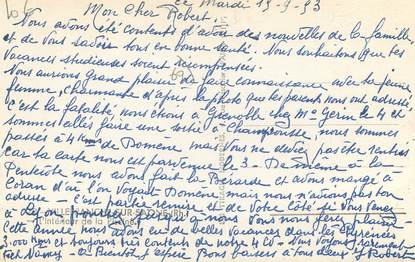 ce Mardi 15-9-53
Mon Cher Robert.
Nous avons été contents d'avoir des nouvelles de la famille
et de vous savoir tous en bonne santé. Nous souhaitons que tes
vacances studieuses soient récompensées.
Nous aurions grand plaisir de faire connaissance avec ta jeune
femme, charmante d'après la photo que tes parents nous ont adressée
c'est la fatalité nous étions à Grenoble chez Mr Gerin le 4 et
sommes allés faire une sortie à Chamrousse, nous sommes
passés à 4 kms de Domène mais vous ne deviez pas être rentrés
car ta carte nous est parvenue le 3 - De même à la
Pentecôte nous avons fait la et avons mangé à
Coran d'ai l'on voyait Domène mais nous n'avions pas ton
adresse - c'est partie remise et de votre côté si vous venez
à Lyon nous vous nous ferez plaisir -
Cette année nous avons eu de belles vacances dans les Pyrénées
3.000 kms et toujours très contents de notre 4 CV - Nous voyons rarement
Nancy - à Bientôt j'espère Bons baisers à tous deux Robert
L'intérieur de la